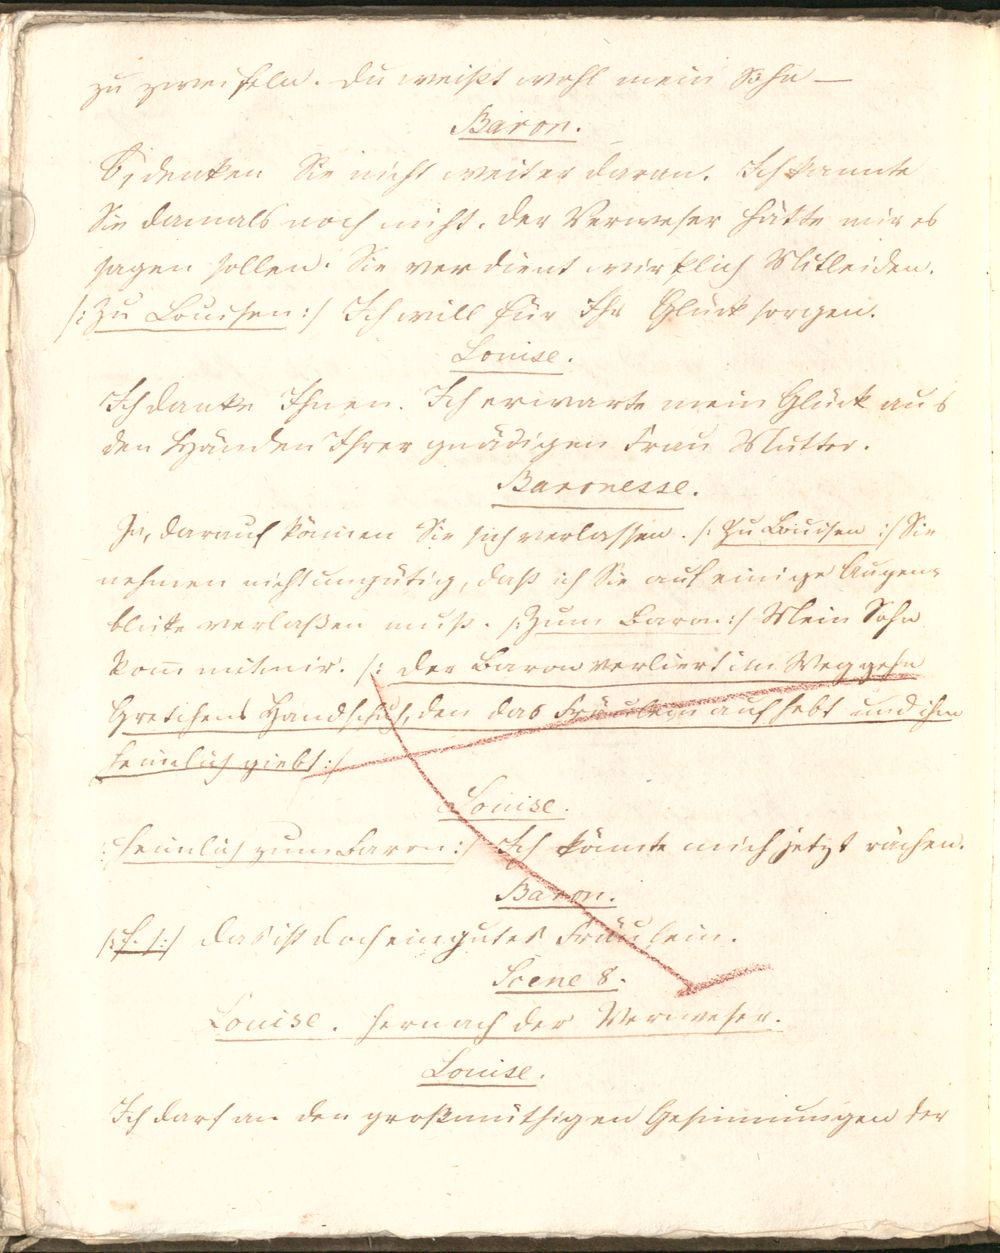 zu zweifeln. Du weißt wohl mein Sohn —
Baron.
Gedenken Sie nicht weiter daran. Ich kannte
Sie damals noch nicht. Der Verweser hätte mir es
sagen sollen. Sie verdient wirklich Mitleiden.
/: Zu Louisen :/ Ich will für Ihr Glück sorgen.
Louise.
Ich danke Ihnen. Ich erwarte mein Glück aus
den Händen Ihrer gnädigen Frau Mutter.
Baronesse.
Ja, darauf können Sie sich verlassen. /: Zu Louisen :/ Sie
nehmen nicht ungütig, daß ich Sie auf einige Augen-
blicke verlaßen muß. /: Zum Baron :/ Mein Sohn
kom̄ mit mir. /: Der Baron verliert im Weggehn
Gretchens Handschuh, den das Fräulein aufhebt und ihm
heimlich giebt :/
Louise.
: heimlich zum Baron :/ Ich könnte mich jetzt rächen.
Baron.
/: f. s. :/ Das ist doch ein gutes Fräulein.
Scene 8.
Louise. hernach der Verweser.
Louise.
Ich darf an den großmüthigen Gesinnungen der